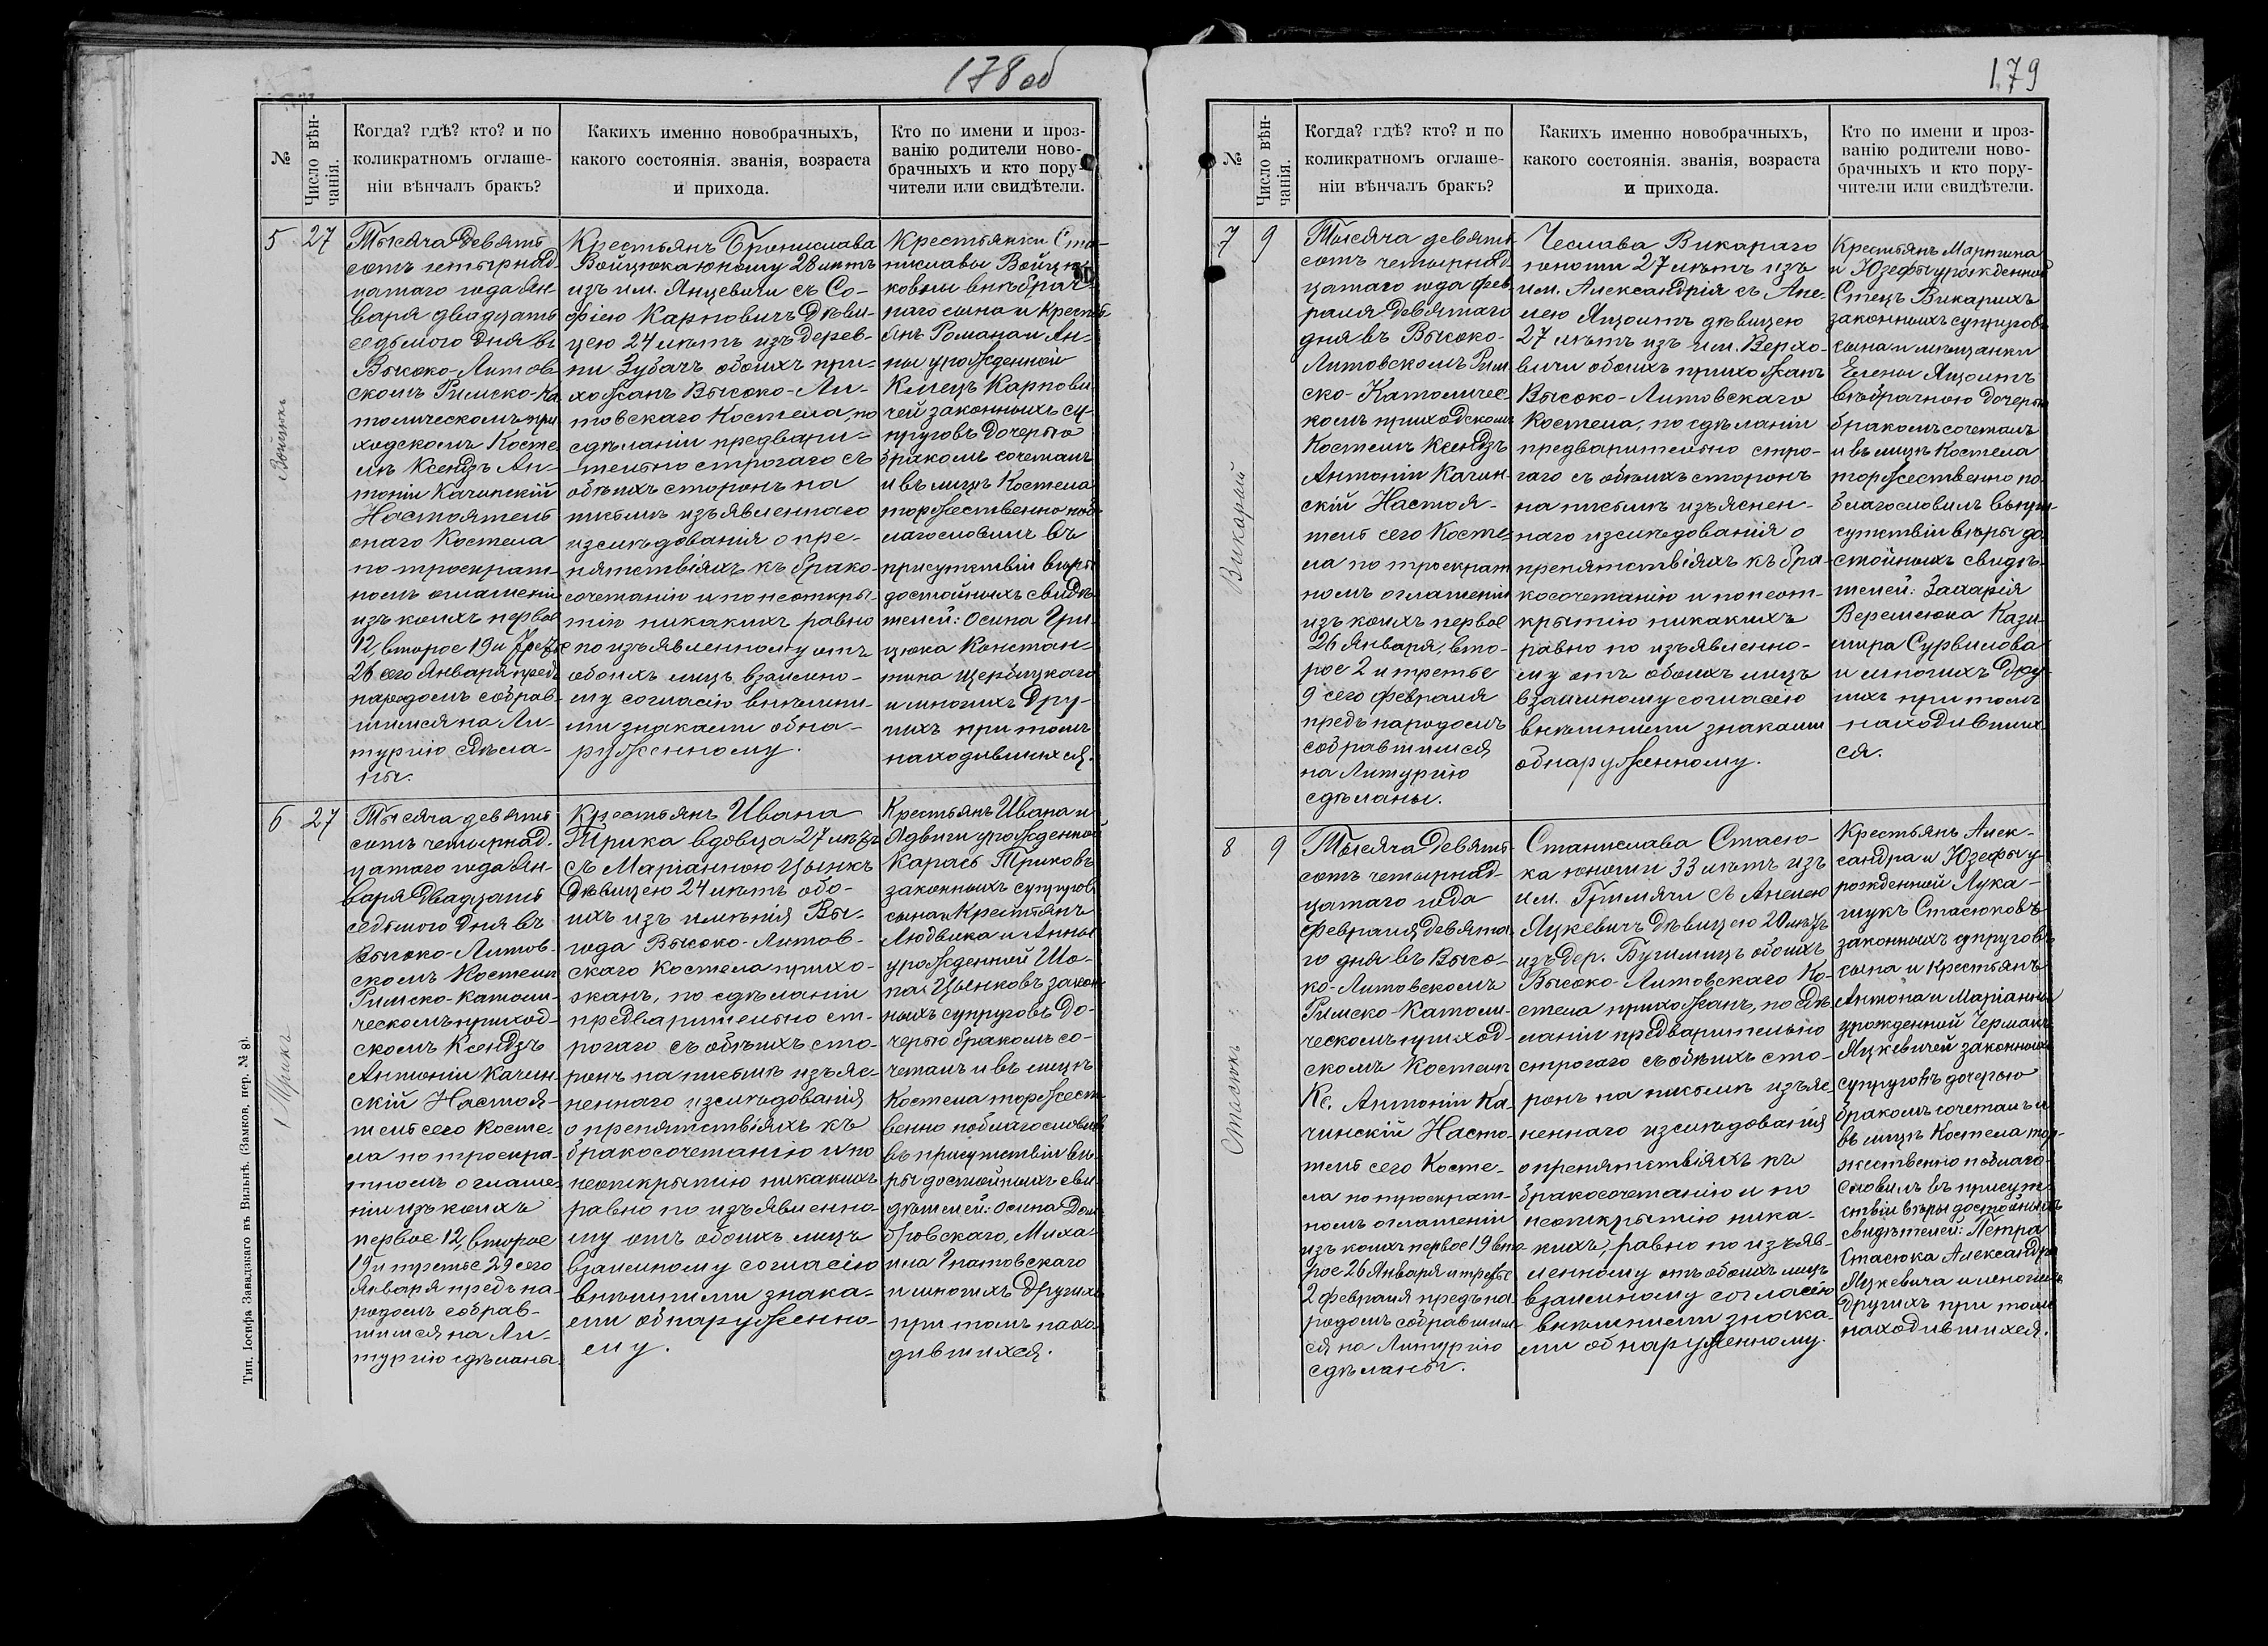 178 об
№
Число вѣн-
чанія.
Когда? гдѣ? кто? и по
коликратномъ оглаше-
ніи вѣнчалъ бракъ?
Какихъ именно новобрачныхъ,
какого состоянія. званія, возраста
и прихода.
Кто по имени и проз-
ванію родители ново-
брачныхъ и кто пору-
чители или свидѣтели.
5
27
Войцюкъ
Тысяча девять
сотъ четырнад-
цатаго года Ян-
варя двадцать
седьмого дня въ
Высоко-Литов
скомъ Римско-Ка
толическомъ при
ходскомъ Косте
лѣ Ксендзъ Ан-
тоній Качинскій
Настоятель
онаго Костела
по троекрат-
номъ оглашеніи
изъ коихъ первое
12, второе 19 и третье
26 сего Января предъ
народомъ собрав-
шимся на Ли-
тургію сдѣла-
ны.
Крестьянъ Бронислава
Войцюка юношу 28 лѣтъ
изъ им. Янцевичи съ Со-
фіею Карповичъ дѣви-
цею 24 лѣтъ изъ дерев-
ни Зубачъ обоихъ при-
хожанъ Высоко-Ли-
товскаго Костела, по
сдѣланіи предвари-
тельно строгаго съ
обѣихъ сторонъ на
письмѣ изъявленнаго
изслѣдованія о пре-
пятствіяхъ къ брако-
сочетанію и по неоткры-
тію никакихъ равно
по изъявленному отъ
обоихъ лицъ взаимно-
му согласію внѣшни-
ми знаками обна-
руженному.
Крестьянки Ста-
ниславы Войцю-
ковны внѣбрач-
наго сына и крестья-
нъ Романа и Ан-
ны урожденной
Клецъ Карпови-
чей законныхъ су-
пруговъ дочерью
бракомъ сочеталъ
и въ лицѣ Костела
торжественно поб-
лагословилъ въ
присутствіи вѣры
достойныхъ свидѣ-
телей: Осипа Гри-
цюка Констан-
тина Щербицкаго
и многихъ дру-
гихъ при томъ
находившихся.
6
27
Трикъ
Тысяча девять
сотъ четырнад-
цатаго года Ян-
варя двадцать
седьмого дня въ
Высоко-Литов-
скомъ Костелѣ
Римско-Католи-
ческомъ приход-
скомъ Ксендзъ
Антоній Качин-
скій Настоя-
тель сего Косте-
ла по троекра-
тномъ оглаше-
ніи изъ коихъ
первое 12, второе
19 и третье 29 сего
Января предъ на-
родомъ собрав-
шимся на Ли-
тургію сдѣланы
Крестьянъ Ивана
Трика вдовца 27 лѣтъ
съ Маріанною Цынкъ
дѣвицею 24 лѣтъ обо-
ихъ изъ имѣнія Вы-
года Высоко-Литов-
скаго Костела прихо-
жанъ, по сдѣланіи
предварительно ст-
рогаго съ обѣихъ сто-
ронъ на письмѣ изъяс-
неннаго изслѣдованія
о препятствіяхъ къ
бракосочетанію и по
неоткрытію никакихъ
равно по изъявленно-
му отъ обоихъ лицъ
взаимному согласію
внѣшними знака-
ми обнаруженно-
му.
Крестьянъ Ивана и
Ядвиги урожденной
Карась Триковъ
законныхъ супруговъ
сына и Крестьянъ
Людвика и Анны
урожденной Шо-
па Цынковъ закон-
ныхъ супруговъ до-
черью бракомъ со-
четалъ и въ лицѣ
Костела торжест-
венно поблагословилъ
въ присутствіи вѣ-
ры достойныхъ сви-
дѣтелей: Осипа Дом-
бровскаго, Миха-
ила Гнатовскаго
и многихъ другихъ
при томъ нахо-
дившихся.
Тип. Іосифа Завадзкаго въ Вильнѣ. (Замков. пер. № 8).
179
№
Число вѣн-
чанія.
Когда? гдѣ? кто? и по
коликратномъ оглаше-
ніи вѣнчалъ бракъ?
Какихъ именно новобрачныхъ,
какого состоянія. званія, возраста
и прихода.
Кто по имени и проз-
ванію родители ново-
брачныхъ и кто пору-
чители или свидѣтели.
7
9
Викарый
Тысяча девять
сотъ четырнад-
цатаго года Фев-
раля девятаго
дня въ Высоко-
Литовскомъ Рим
ско-Католичес-
комъ приходскомъ
Костелѣ Ксендзъ
Антоній Качин-
скій Настоя-
тель сего Косте-
ла по троекрат
номъ оглашеніи
изъ коихъ первое
26 Января, вто-
рое 2 и третье
9 сего февраля
предъ народомъ
собравшимся
на Литургію
сдѣланы.
Чеслава Викараго
юноши 27 лѣтъ изъ
им. Александрія съ Анe-
лею Яцоитъ дѣвицею
27 лѣтъ изъ им. Верхо-
вичи обоихъ прихожанъ
Высоко-Литовскаго
Костела, по сдѣланіи
предварительно стро-
гаго съ обѣихъ сторонъ
на письмѣ изъяснен-
наго изслѣдованія о
препятствіяхъ къ бра-
косочетанію и по неот-
крытію никакихъ
равно по изъявленно-
му отъ обоихъ лицъ
взаимному согласію
внѣшними знаками
обнаруженному.
Крестьянъ Мартина
и Юзефы урожденной
Стецъ Викарыхъ
законныхъ супруговъ
сына и мѣщанки
Елены Яцоитъ
внѣбрачною дочерью
бракомъ сочеталъ
и въ лицѣ Костела
торжественно по-
благословилъ въ при-
сутствіи вѣры до-
стойныхъ свидѣ-
телей: Захарія
Веремеюка Кази-
мира Сурвилова
и многихъ дру-
гихъ при томъ
находивших-
ся.
8
9
Стасюкъ
Тысяча девять-
сотъ четырнад-
цатаго года
февраля девята-
го дня въ Высо-
ко-Литовскомъ
Римско-Католи-
ческомъ приход-
скомъ Костелѣ
Кс. Антоній Ка-
чинскій Насто-
тель сего Косте-
ла по троекрат-
номъ оглашеніи
изъ коихъ первое 19 вто-
рое 26 Января и третье
2 февраля предъ на-
родомъ собравшим
ся на Литургію
сдѣланы.
Станислава Стасю-
ка юноши 33 лѣтъ изъ
им. Гримячи съ Анелею
Яцкевичъ дѣвицею 20 лѣтъ
изъ дер. Бушмицъ обоихъ
Высоко-Литовскаго Ко-
стела прихожанъ, по сдѣ-
ланіи предварительно
строгаго съ обѣихъ сто-
ронъ на письмѣ изъяс
неннаго изслѣдованія
о препятствіяхъ къ
бракосочетанію и по
неоткрытію ника-
кихъ, равно по изъяв-
ленному отъ обоихъ лицъ
взаимному согласію
внѣшними знака-
ми обнаруженному.
Крестьянъ Алек-
сандра и Юзефы у-
рожденной Лука-
шукъ Стасюковъ
законныхъ супруговъ
сына и крестьянъ
Антона и Маріанны
урожденной Чермакъ
Яцкевичей законныхъ
супруговъ дочерью
бракомъ сочеталъ и
въ лицѣ Костела тор-
жественно поблаго-
словилъ въ присут-
ствіи вѣры достойныхъ
свидѣтелей: Петра
Стасюка Александра
Яцкевича и многихъ
другихъ при томъ
находившихся.